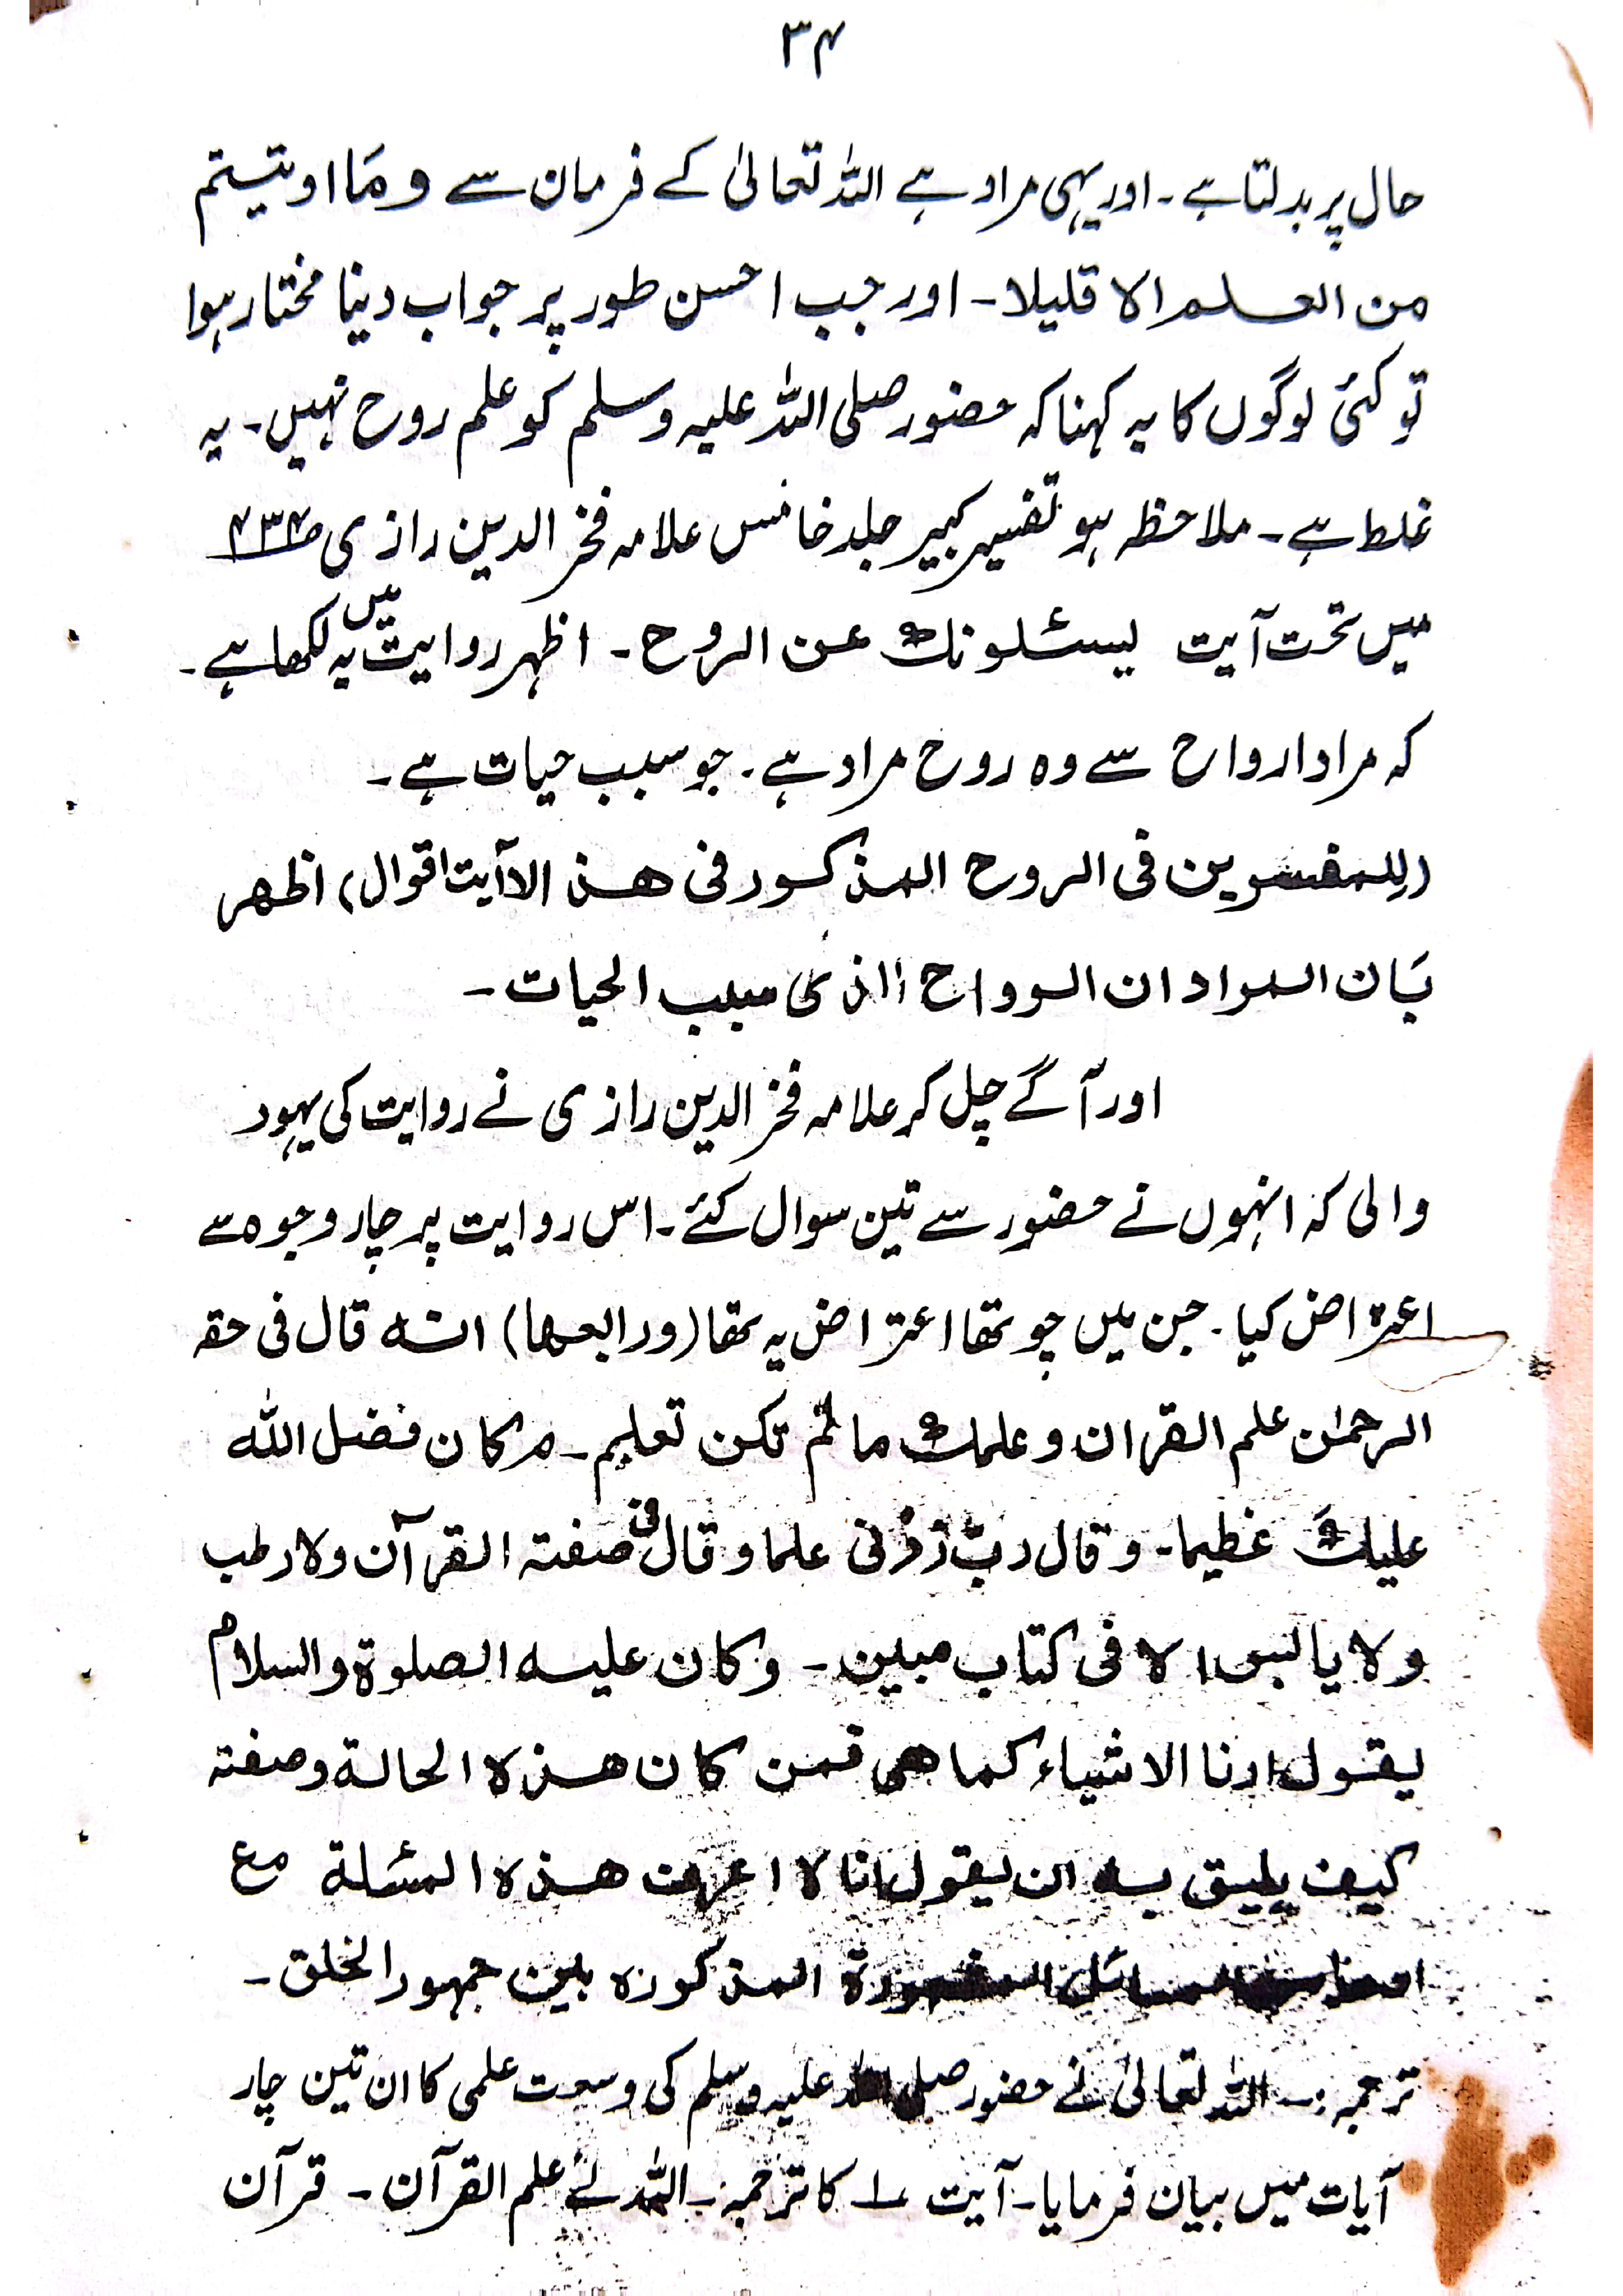 ۳۴
حال پر بدلتا ہے۔ اور یہی مراد ہے اللہ تعالیٰ کے فرمان سے ومَا اوتیتم
من العلم الا قلیلا۔ اور جب احسن طور پر جواب دینا مختار ہوا
تو کئی لوگوں کا یہ کہنا کہ حضور صلی اللہ علیہ وسلم کو علم روح نہیں۔ یہ
غلط ہے۔ ملاحظہ ہو تفسیر کبیر جلد خامس علامہ فخر الدین رازی ص۴۳۴
میں تحت آیت یسئلونک عن الروح۔ اظہر روایت میں یہ لکھا ہے۔
کہ مراد ارواح سے وہ روح مراد ہے۔ جو سبب حیات ہے۔
(للمفسرین فی الروح المذکور فی هذ الاآیت اقوال) اظهر
بَان المراد ان الرواح الذی سبب الحیات۔
اور آگے چل کر علامہ فخر الدین رازی نے روایت کی یہود
والی کہ انہوں نے حضور سے تین سوال کئے۔ اس روایت پر چار وجوہ سے
اعتراض کیا۔ جن میں چوتھا اعتراض یہ تھا (ورابعها) انه قال فی حقه
الرحمٰن علم القران وعلمک مالم تکن تعلیم۔ وکان فضل اللہ
علیکَ غظیما۔ وقال ربّ زدنی علما وقال فی صفته القرآن ولا رطب
ولا یا لبس الا فی کتاب مبین۔ وکان علیه الصلوة والسلام
یقول ارنا الاشیاء کما هی فمن کان هذه الحالة وصفته
کیف یلیق به ان یقول انا لا اعرف هذه المسئلة مع
المذکوره بین جمهور الخلق۔
ترجمہ:۔ اللہ تعالیٰ نے حضور صلی اللہ علیہ وسلم کی وسعت علمی کا ان تین چار
آیات میں بیان فرمایا۔ آیت ۱ کا ترجمہ۔ اللہ نے علم القرآن۔ قرآن